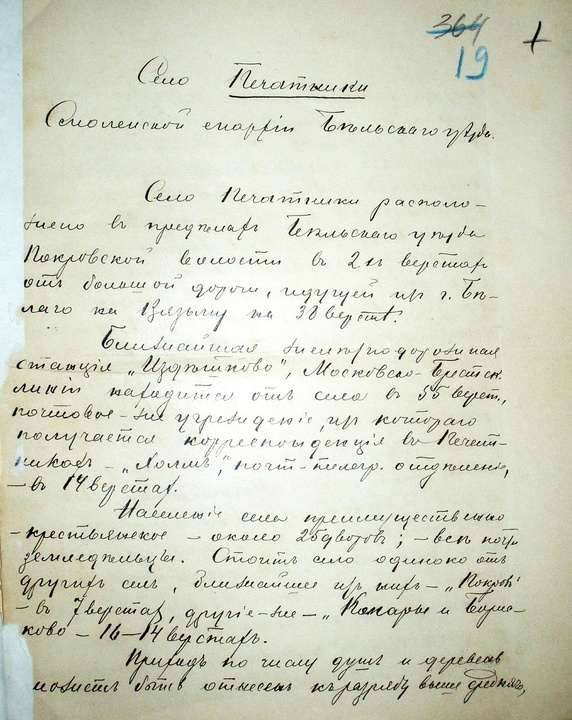 364
19
+
Село Печатники
Смоленской епархіи Бѣльскаго уѣзда.
Село Печатники располо-
жено въ предѣлахъ Бѣльскаго уѣзда
Покровской волости въ 2хъ верстахъ
отъ большой дороги, идущей изъ г. Бѣ-
лаго на Вязьму на 38 верстѣ.
Ближайшая железнодорожная
станція „Издѣшково", Московско-Брестск.
линіи находится отъ села въ 55 верст.,
почтовое-же учрежденіе, изъ котораго
получается корреспонденція въ Печат-
никахъ - „Холмъ", почт-телегр. отдѣленіе,
- въ 14 верстахъ.
Населеніе села преимущественно
- крестьянское - около 25 дворовъ; - всѣ почти
земледѣльцы. Стоитъ село одиноко отъ
другихъ селъ, ближайшее изъ нихъ - „Покровъ"
- въ 7 верстахъ, другіе-же - и
ково - 16-14 верстахъ.
Приходъ по числу душъ и деревень
можетъ быть отнесенъ къ разряду выше средняго,